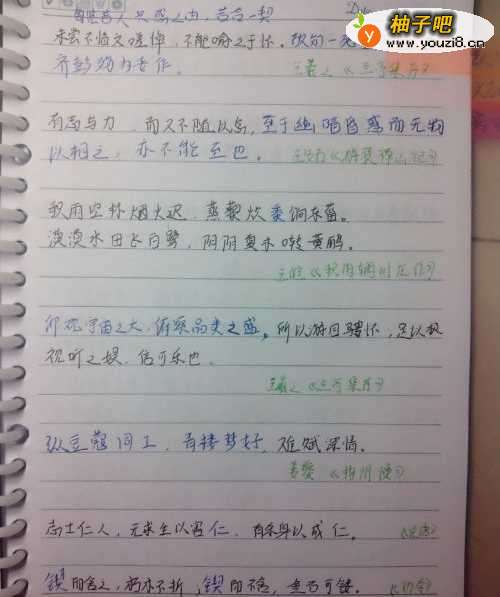 每览昔人兴感之由，若合一契
未尝不临文嗟悼，不能喻之于怀。故知一死
齐彭殇为妄作。
王羲之《兰亭集序》
有志与力，而又不随以怠，至于幽暗昏惑而无物
以相之，亦不能至也。
王安石《游褒禅山记》
积雨空林烟火迟，蒸藜炊黍饷东菑。
漠漠水田飞白鹭，阴阴夏木啭黄鹂。
王维《积雨辋川庄作》
仰观宇宙之大，俯察品类之盛，所以游目骋怀，足以极
视听之娱，信可乐也。
王羲之《兰亭集序》
纵豆蔻词工，青楼梦好，难赋深情。
姜夔《扬州慢》
志士仁人，无求生以害仁，有杀身以成仁。
《论语》
锲而舍之，朽木不折，锲而不舍，金石可镂。
《劝学》
柚子吧
www.youzi8.cn